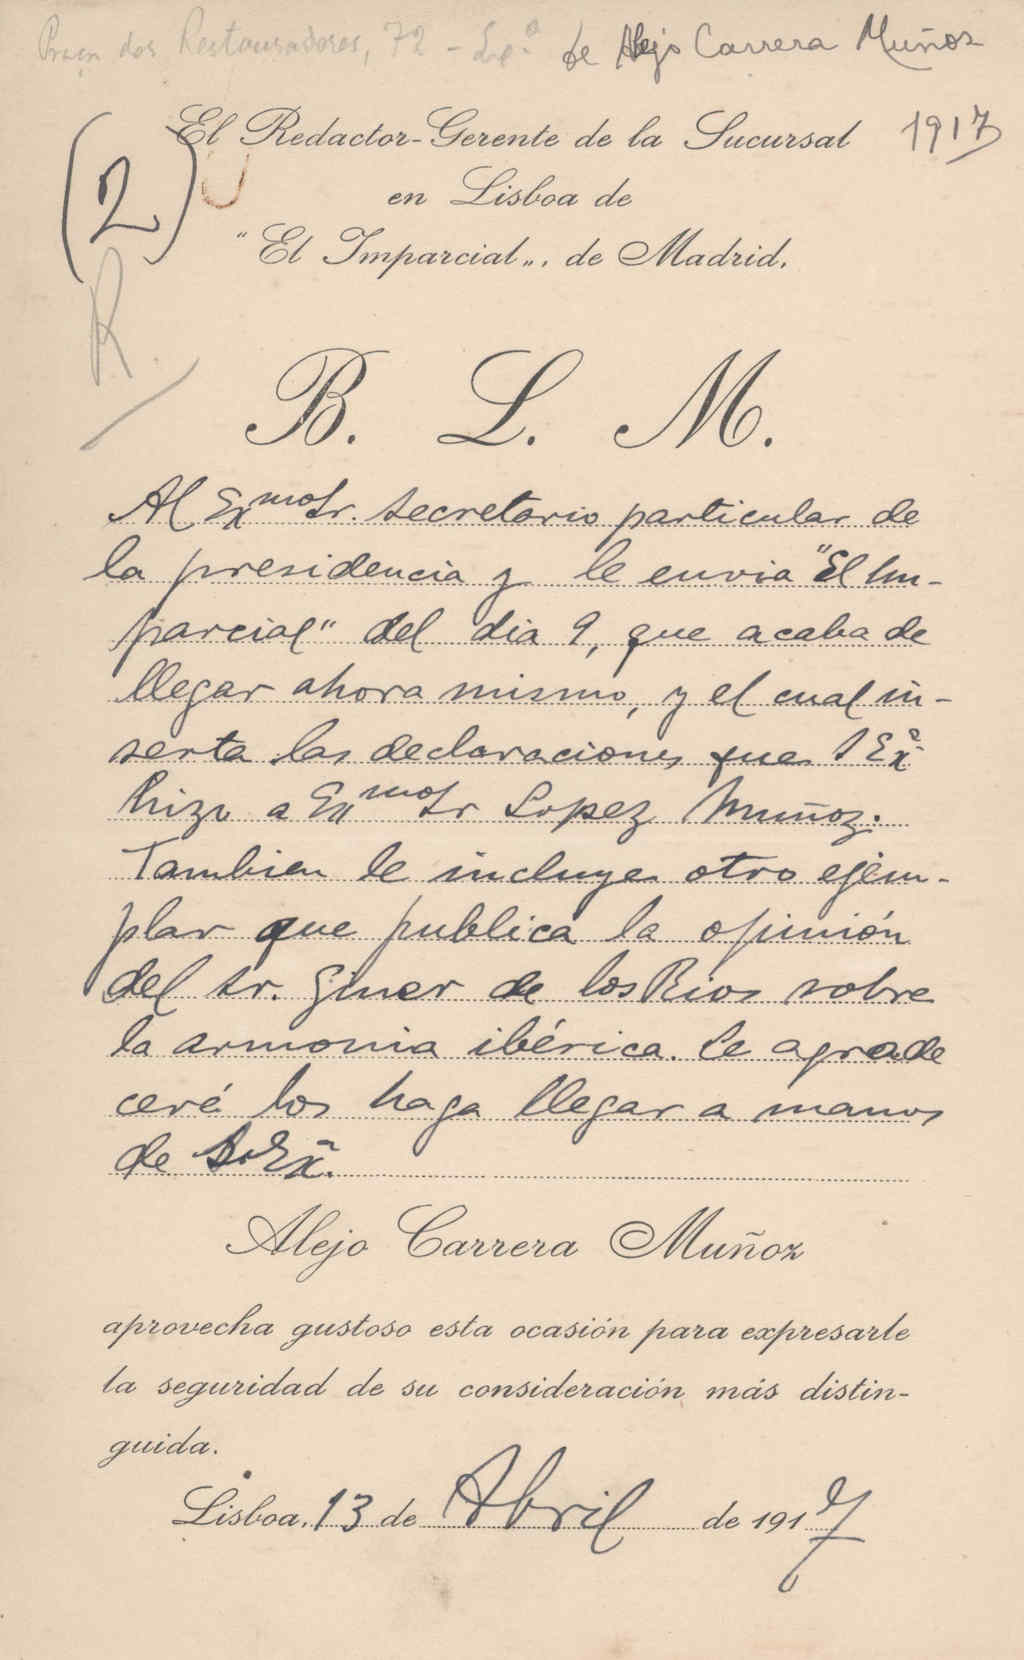 Praça dos Restauradores, 72 - de Alejo Carrera Muñoz
1917
(2)
R.
El Redactor-Gerente de la Sucursal
en Lisboa de
"El Imparcial„. de Madrid.
B. L. M.
Al Exmo Sr. secretario particular de
la presidencia y le envia "El Im-
parcial" del dia 9, que acaba de
llegar ahora mismo, y el cual in-
serta las declaraciones que S Exª
hizo a Exmo Sr Lopez Muñoz.
Tambien le incluye otro ejem-
plar que publica la opinión
del Sr. Giner de los Rios sobre
la armonia ibérica. Le agrade
ceré los haga llegar a manos
de S. Exª.
Alejo Carrera Muñoz
aprovecha gustoso esta ocasión para expresarle
la seguridad de su consideración más distin-
guida.
Lisboa, 13 de Abril de 1917